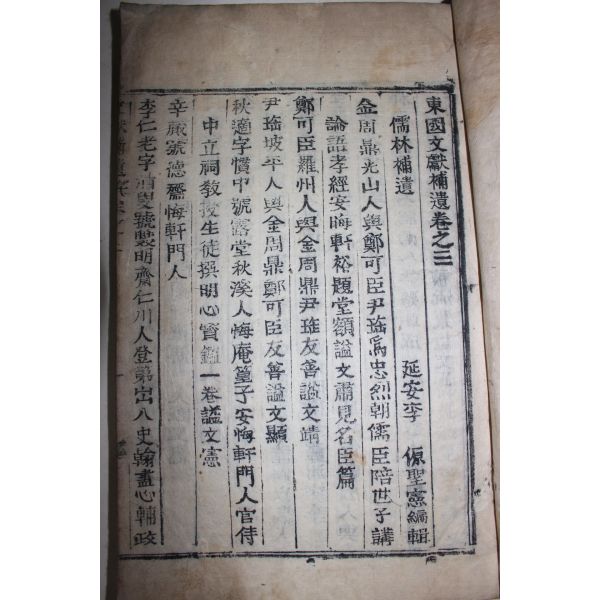 東國文獻補遺卷之三
延安李 源聖憲編輯
儒林補遺
金周鼎光山人與鄭可臣尹珤爲忠烈朝儒臣陪世子講
論語孝經安晦軒裕題堂額謚文肅見名臣篇
鄭可臣羅州人與金周鼎尹珤友善謚文靖
尹珤坡平人與金周鼎鄭可臣友善謚文顯
秋適字慣中號露堂秋溪人悔庵篁子安晦軒門人官侍
中立祠教授生徒撰明心寶鑑一卷謚文憲
辛蕆號德齋晦軒門人
李仁老字眉叟號雙明齋仁川人登第出入史翰盡心輔政